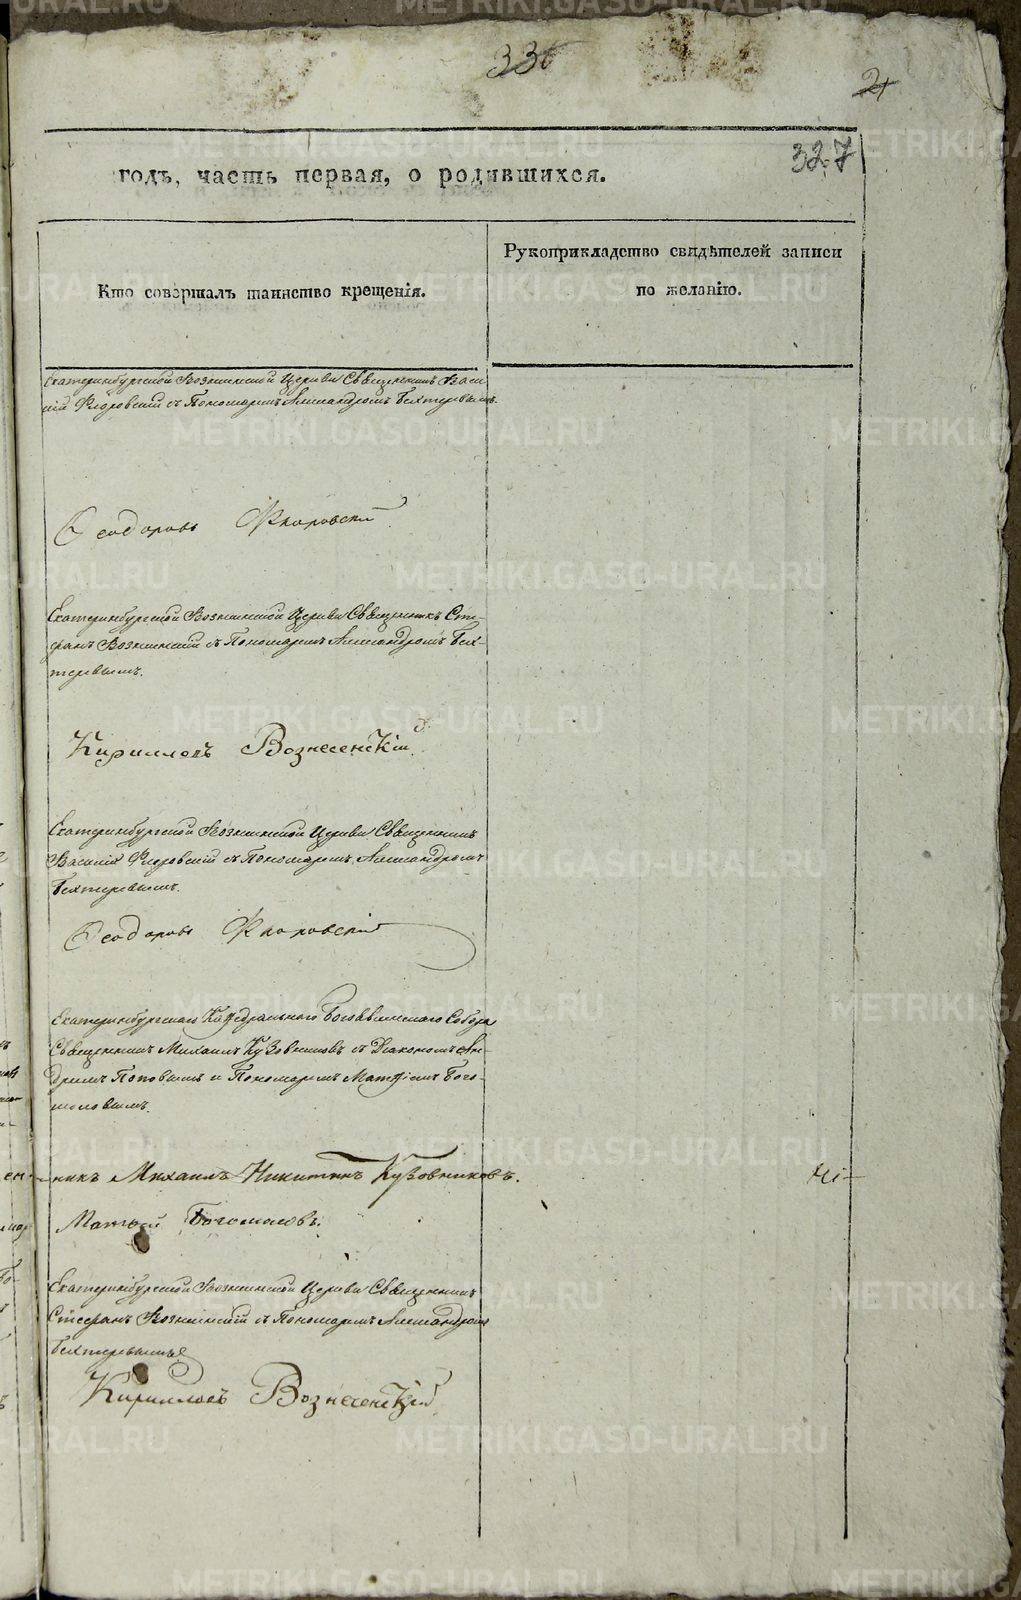 336
21
327
годъ, часть первая, о родившихся.
Кто совершалъ таинство крещенія.
Рукоприкладство свидѣтелей записи
по желанію.
Екатеринбургской Вознесенской Церкви Священникъ Васи-
лій Флоровскій съ Пономаремъ Александромъ Бехтеревымъ.
Ѳеодоровъ Флоровскій
Екатеринбургской Вознесенской Церкви Священникъ Сте-
фанъ Вознесенскій съ Пономаремъ Александромъ Бех-
теревымъ.
Кирилловъ Вознесенскій
Екатеринбургской Вознесенской Церкви Священникъ
Василій Флоровскій съ Пономаремъ Александромъ
Бехтеревымъ.
Ѳеодоровъ Флоровскій
Екатеринбургскаго Каѳедральнаго Богоявленскаго Собора
Священникъ Михаилъ Кузовниковъ съ Діакономъ Ан-
дреемъ Поповымъ и Пономаремъ Матѳіемъ Бого-
моловымъ.
никъ Михаилъ Никитинъ Кузовниковъ.
Матѳей Богомоловъ.
Екатеринбургской Вознесенской Церкви Священникъ
Стефанъ Вознесенскій съ Пономаремъ Александромъ
Бехтеревымъ
Кирилловъ Вознесенскій
METRIKI.GASO-URAL.RU